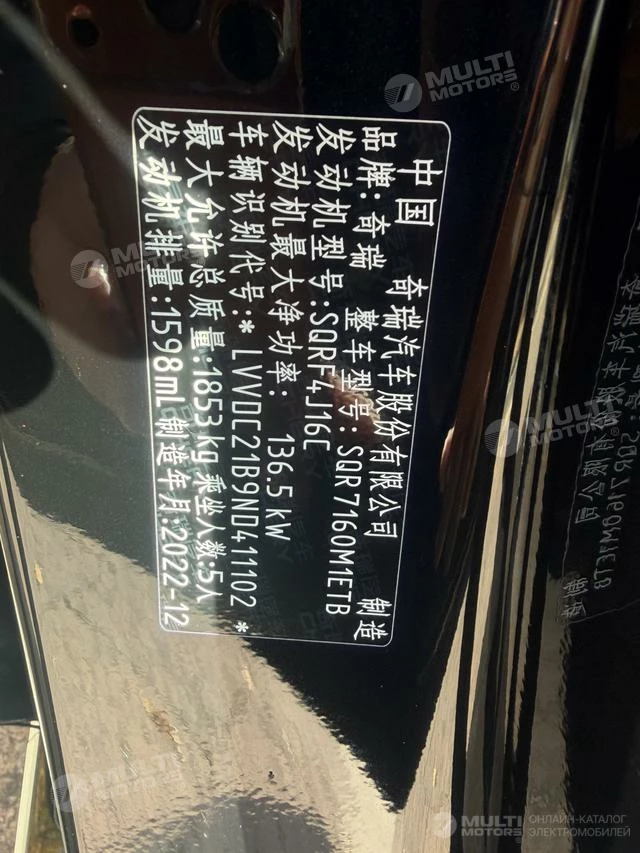 中国 奇瑞汽车股份有限公司 制造
品牌: 奇瑞 整车型号: SQR7160M1ETB
发动机型号: SQRF4J16C
发动机最大净功率: 136.5 kW
车辆识别代号: * LVVDC21B9ND411102 *
最大允许总质量: 1853 kg 乘坐人数: 5人
发动机排量: 1598mL 制造年月: 2022-12
MULTI MOTORS®
MULTI MOTORS®
MULTI MOTORS®
MULTI MOTORS®
MULTI MOTORS®
MULTI MOTORS®
ОНЛАЙН-КАТАЛОГ
ЭЛЕКТРОМОБИЛЕЙ